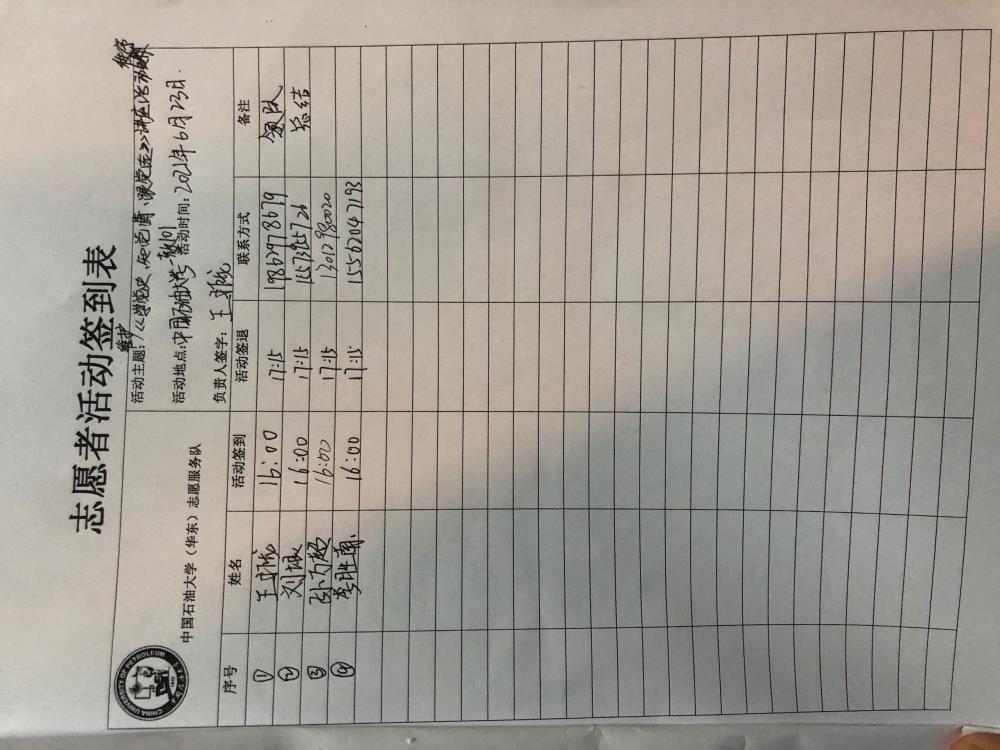 志愿者活动签到表
CHINA UNIVERSITY OF PETROLEUM
中国石油大学（华东）志愿服务队
活动主题：《学党史、知党情、跟党走》讲座活动秩序
维护
活动地点：中国石油大学 活动时间：2021年6月23日.
负责人签字：
序号 姓名 活动签到 活动签退 联系方式 备注
① 16:00 17:15 19862978679 领队
② 刘 16:00 17:15 15573955726 总结
③ 16:00 17:15 13012980020
④ 李胜 16:00 17:15 15562047193